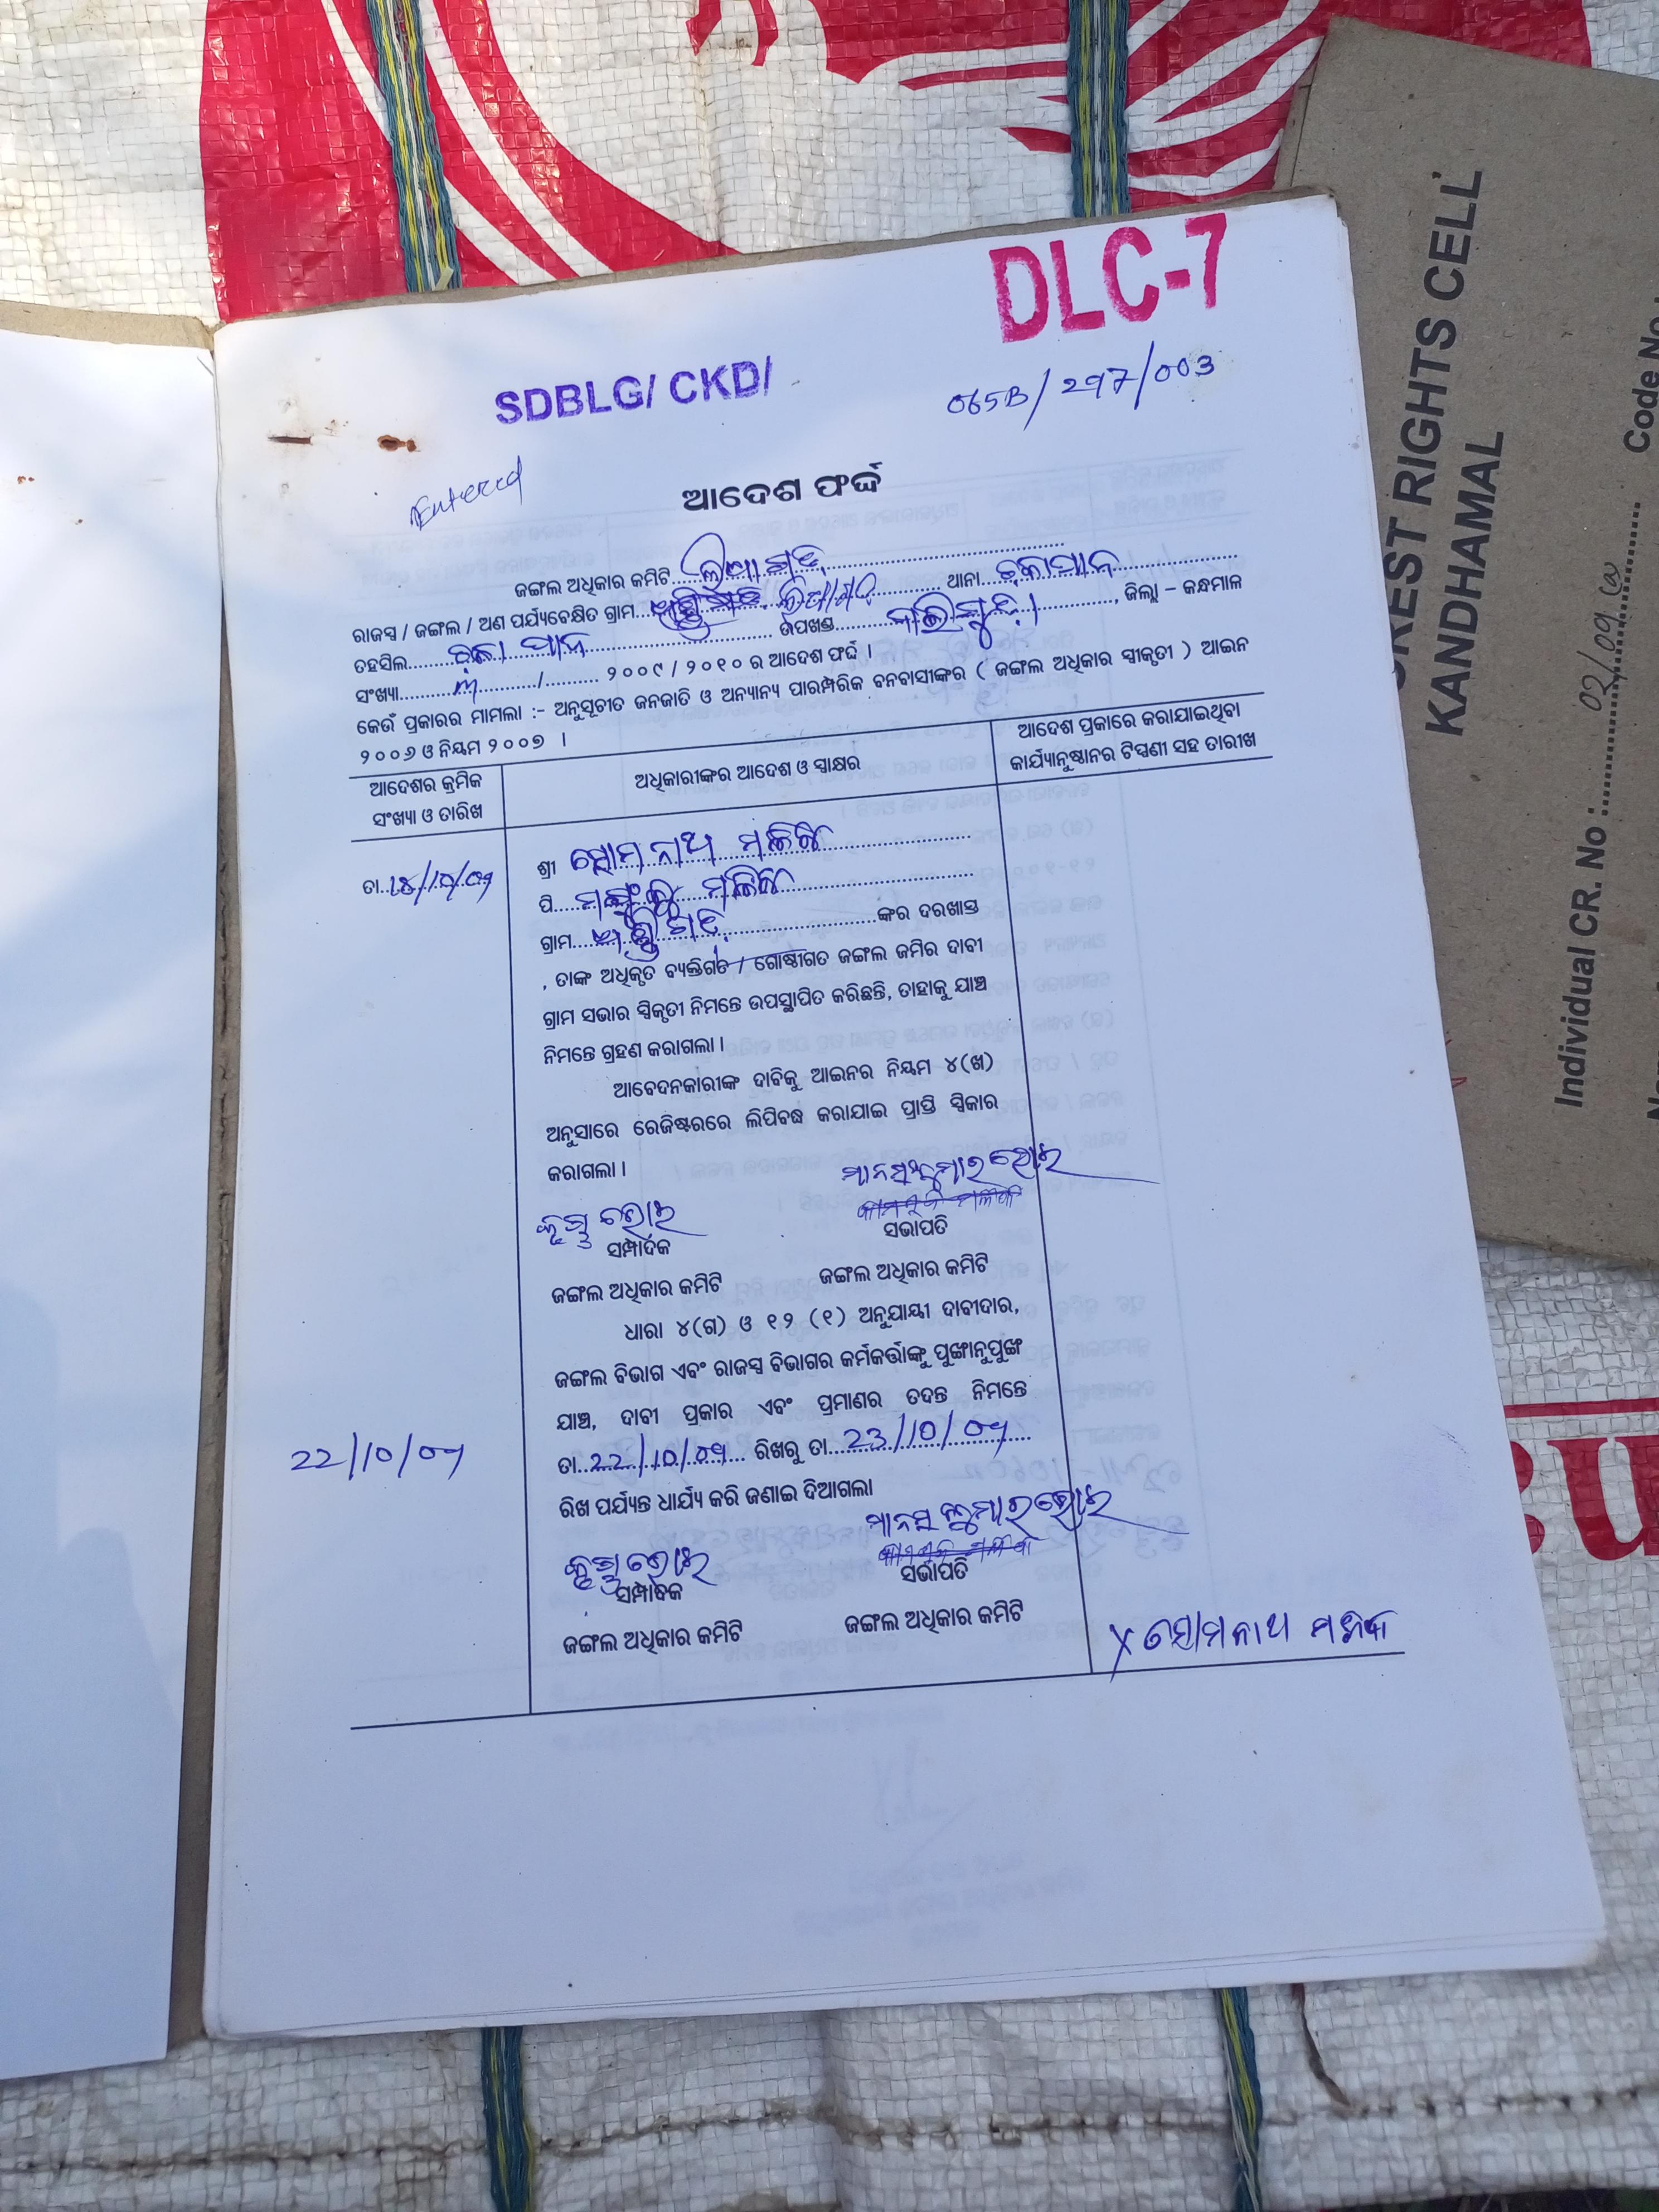 DLC-7
SDBLG/ CKD/
065B/297/003
Entered
ଆଦେଶ ଫର୍ଦ୍ଦ
ଜଙ୍ଗଲ ଅଧିକାର କମିଟି
ରାଜସ୍ୱ / ଜଙ୍ଗଲ / ଅଣ ପର୍ଯ୍ୟବେକ୍ଷିତ ଗ୍ରାମ ଥାନା ଚକାପାଦ
ତହସିଲ ଚକାପାଦ ଉପଖଣ୍ଡ , ଜିଲ୍ଲା – କନ୍ଧମାଳ
ସଂଖ୍ୟା / ୨୦୦୯ / ୨୦୧୦ ର ଆଦେଶ ଫର୍ଦ୍ଦ ।
କେଉଁ ପ୍ରକାରର ମାମଲା :- ଅନୁସୂଚୀତ ଜନଜାତି ଓ ଅନ୍ୟାନ୍ୟ ପାରମ୍ପରିକ ବନବାସୀଙ୍କର ( ଜଙ୍ଗଲ ଅଧିକାର ସ୍ୱୀକୃତୀ ) ଆଇନ
୨୦୦୬ ଓ ନିୟମ ୨୦୦୭ ।
ଆଦେଶର କ୍ରମିକ
ସଂଖ୍ୟା ଓ ତାରିଖ
ଅଧିକାରୀଙ୍କର ଆଦେଶ ଓ ସ୍ୱାକ୍ଷର
ଆଦେଶ ପ୍ରକାରେ କରାଯାଇଥିବା
କାର୍ଯ୍ୟାନୁଷ୍ଠାନର ଟିପ୍ପଣୀ ସହ ତାରୀଖ
ତା
ଶ୍ରୀ ସୋମନାଥ ମଳିକ
ପି ମଳିକ
ଗ୍ରାମ ଙ୍କର ଦରଖାସ୍ତ
, ତାଙ୍କ ଅଧିକୃତ ବ୍ୟକ୍ତିଗତ / ଗୋଷ୍ଠୀଗତ ଜଙ୍ଗଲ ଜମିର ଦାବୀ
ଗ୍ରାମ ସଭାର ସ୍ୱିକୃତୀ ନିମନ୍ତେ ଉପସ୍ଥାପିତ କରିଛନ୍ତି, ତାହାକୁ ଯାଞ୍ଚ
ନିମନ୍ତେ ଗ୍ରହଣ କରାଗଲା ।
ଆବେଦନକାରୀଙ୍କ ଦାବିକୁ ଆଇନର ନିୟମ ୪(ଖ)
ଅନୁସାରେ ରେଜିଷ୍ଟରରେ ଲିପିବଦ୍ଧ କରାଯାଇ ପ୍ରାପ୍ତି ସ୍ୱିକାର
କରାଗଲା ।
ମାନସକୁମାର ଭୋଇ
ସମ୍ପାଦକ ସଭାପତି
ଜଙ୍ଗଲ ଅଧିକାର କମିଟି ଜଙ୍ଗଲ ଅଧିକାର କମିଟି
ଧାରା ୪(ଗ) ଓ ୧୨ (୧) ଅନୁଯାୟୀ ଦାବୀଦାର,
ଜଙ୍ଗଲ ବିଭାଗ ଏବଂ ରାଜସ୍ୱ ବିଭାଗର କର୍ମକର୍ତ୍ତାଙ୍କୁ ପୁଙ୍ଖାନୁପୁଙ୍ଖ
ଯାଞ୍ଚ, ଦାବୀ ପ୍ରକାର ଏବଂ ପ୍ରମାଣର ତଦନ୍ତ ନିମନ୍ତେ
22/10/09
ତା 22/10/09 ରିଖରୁ ତା 23/10/09
ରିଖ ପର୍ଯ୍ୟନ୍ତ ଧାର୍ଯ୍ୟ କରି ଜଣାଇ ଦିଆଗଲା
ମାନସ କୁମାର ଭୋଇ
ସମ୍ପାଦକ ସଭାପତି
ଜଙ୍ଗଲ ଅଧିକାର କମିଟି ଜଙ୍ଗଲ ଅଧିକାର କମିଟି
X ସୋମନାଥ ମଳିକ
REST RIGHTS CELL
KANDHAMAL
Code No
Individual CR. No : 02/09